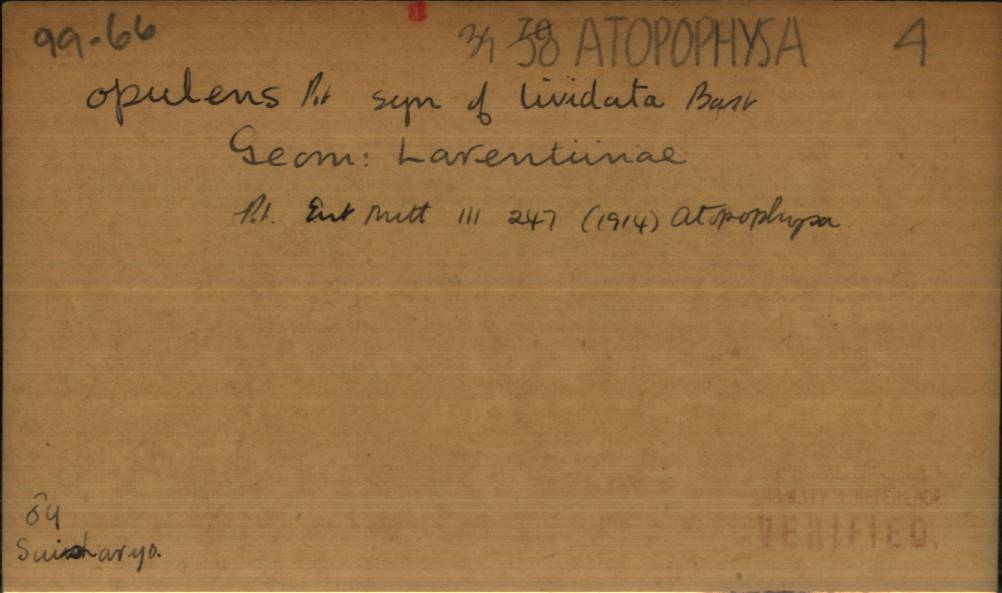 99.66 34 38 ATOPOPHYSA 4
opulens Prt syn of lividata Bast
Geom: Larentiinae
Prt. Ent Mitt III 247 (1914) Atopophysa
VERIFIED.